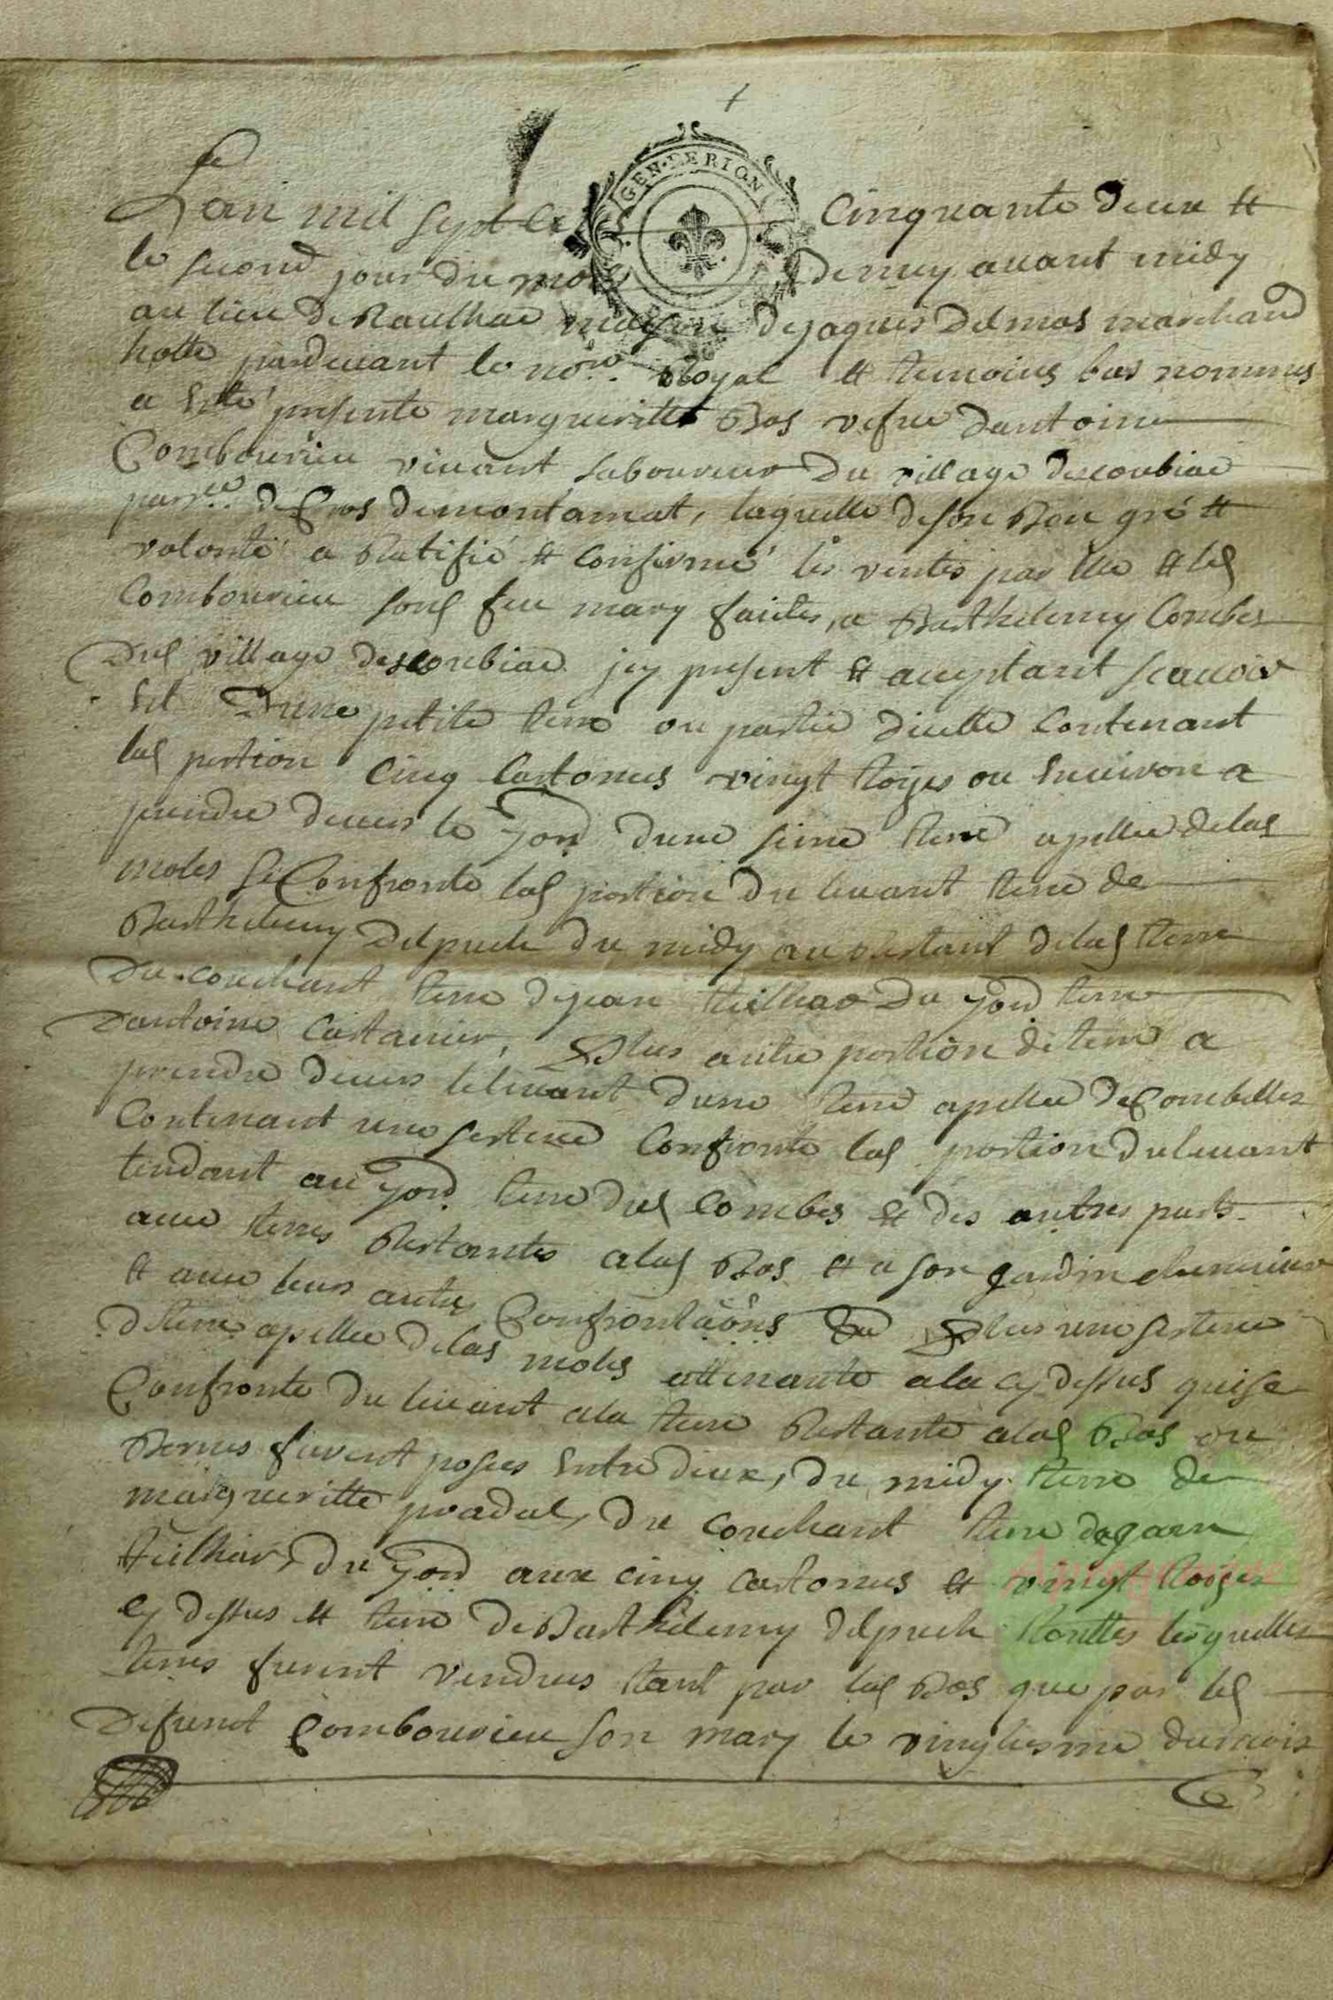 GEN·DE RION
L'an mil sept cens cinquante deux et
le second jour du mois de may avant midy
au lieu de Raulhac maison de jaques Delmas marchand
hotte pardevant le no.re Royal et temoins bas nommés
a esté presente margueritte Bos vefve dantoine
Combourieu vivant laboureur du village descoubiac
parr.ce de Cros de montamat, laquelle de son Bon gré et
volonté a Ratifié et confirmé les ventes par elle et led
Combourieu sond feu mary faites, a Barthelemy Combes
dud village descoubiac jcy present et acceptant scavoir
est Dune petite terre ou partie dicelle contenant
lad portion cinq cartonnes vingt toizes ou environ a
prendre devers le Nord dune sienne terre apellée de las
moles se Confronte lad portion du levant terre de
Barthelemy Delpuech du midy au restant delad terre
du couchant terre de jean teilhac du Nord terre
dantoine Castanier, Plus autre portion de terre a
prendre devers le levant dune terre apellée de Combelles
Contenant une sesterée confronte lad portion du levant
tendant au Nord terre dud Combes et des autres parts
avec terres Restantes alad Bos et a son jardin cheneviere
et avec leurs autres Confronta̅o̅ns Plus une sesterée
de terre apellée de las moles attenante a la cy dessus qui se
Confronte du levant a la terre Restante alad Bos ou
Bornes furent posées entre deux, du midy terre de
margueritte pradal, du couchant terre de jean
teilhac, du Nord aux cinq cartonnes et vingt toizes
cy dessus et terre de Barthélemy delpuech touttes lesquelles
terres furent vendues tant par lad Bos que par led
Defunct Combourieu son mary le vingtiesme du mois